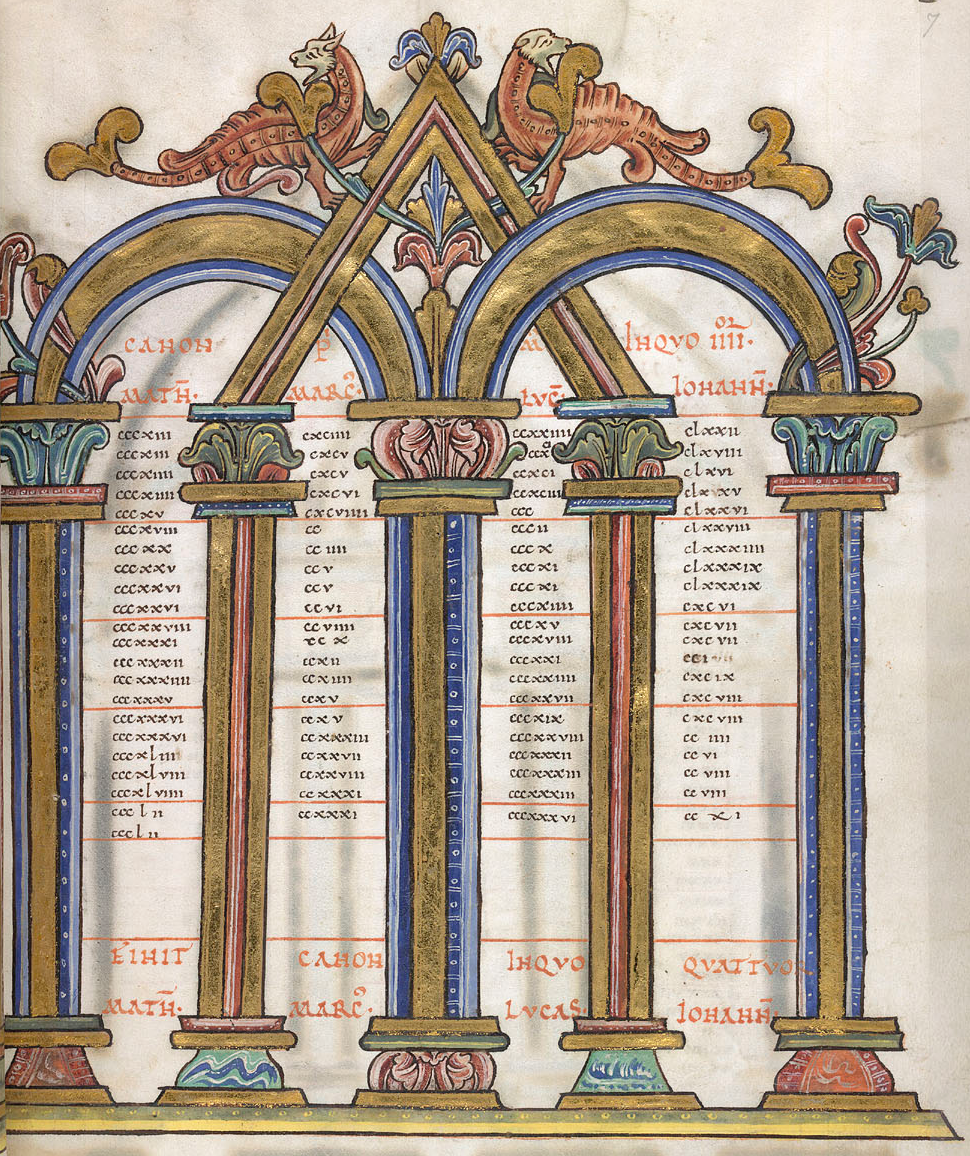 CANON INQUO IIII·
MATH̄· MARC· LUC̄· IOHANN̄·
cccxiii cxciiii clxxii
cccxiiii cxcv clxviii
cccxiiii cxcv clxvi
cccxiiii cxcvi clxxv
cccxv cxcviiii ccc clxxvi
cccxviii cc cccii clxxviii
cccxx cciiii cccx clxxxiiii
cccxxv ccv cccxi clxxxix
cccxxvi ccv cccxi clxxxix
cccxxvi ccvi cccxiiii cxcvi
cccxxviii ccviiii cccxv cxcvii
cccxxxi ccx cccxviii cxcvii
cccxxxii ccxii cccxxi
cccxxxiiii ccxiiii cccxxiiii cxcix
cccxxxv ccxv cccxxvii cxcviii
cccxxxvi ccxv cccxix cxcviii
cccxxxvi ccxxxiii cccxxviii cciiii
cccxliii ccxxvii cccxxxii ccvi
cccxlviii ccxxviii cccxxxiii ccviii
cccxlviiii ccxxxi cccxxxiiii ccviii
ccclii ccxxxi cccxxxvi ccxi
ccclii
EINIT CANON INQUO QUATTUOR
MATH̄· MARC· LUCAS· IOHANN̄·